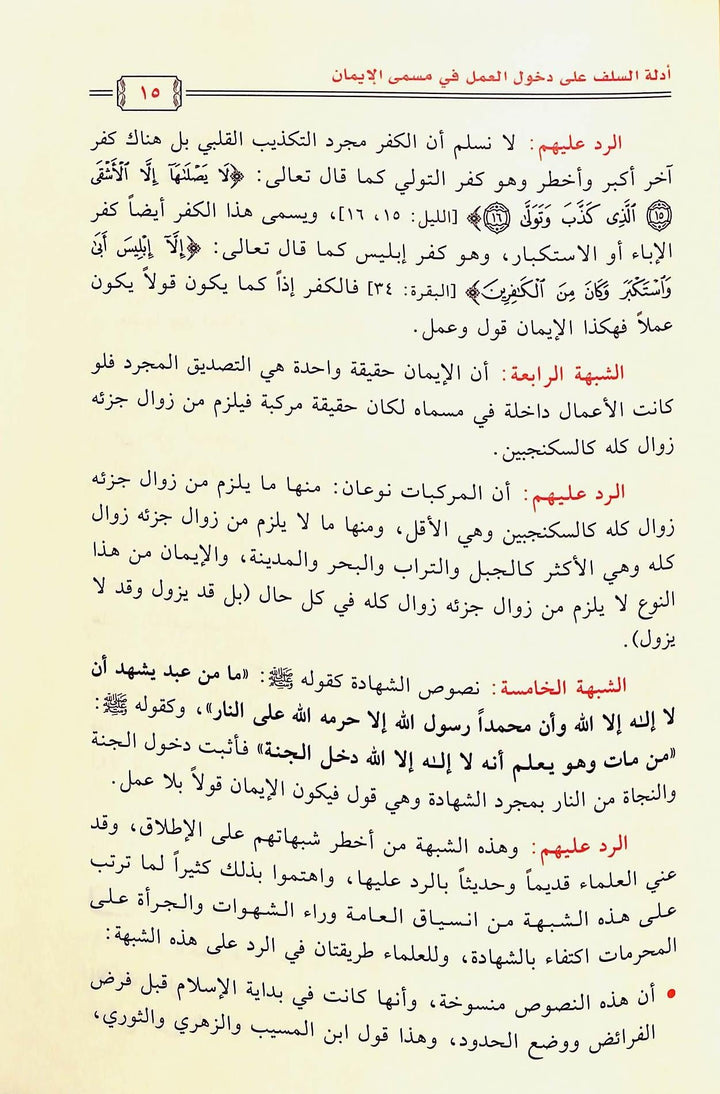 أدلة السلف على دخول العمل في مسمى الإيمان
١٥
الرد عليهم: لا نسلم أن الكفر مجرد التكذيب القلبي بل هناك كفر
آخر أكبر وأخطر وهو كفر التولي كما قال تعالى: ﴿لَا يَصْلَىٰهَآ إِلَّا ٱلْأَشْقَى
١٥ ٱلَّذِى كَذَّبَ وَتَوَلَّىٰ ١٦﴾ [الليل: ١٥، ١٦]، ويسمى هذا الكفر أيضاً كفر
الإباء أو الاستكبار، وهو كفر إبليس كما قال تعالى: ﴿إِلَّآ إِبْلِيسَ أَبَىٰ
وَٱسْتَكْبَرَ وَكَانَ مِنَ ٱلْكَـٰفِرِينَ﴾ [البقرة: ٣٤] فالكفر إذاً كما يكون قولاً يكون
عملاً فهكذا الإيمان قول وعمل.
الشبهة الرابعة: أن الإيمان حقيقة واحدة هي التصديق المجرد فلو
كانت الأعمال داخلة في مسماه لكان حقيقة مركبة فيلزم من زوال جزئه
زوال كله كالسكنجبين.
الرد عليهم: أن المركبات نوعان: منها ما يلزم من زوال جزئه
زوال كله كالسكنجبين وهي الأقل، ومنها ما لا يلزم من زوال جزئه زوال
كله وهي الأكثر كالجبل والتراب والبحر والمدينة، والإيمان من هذا
النوع لا يلزم من زوال جزئه زوال كله في كل حال (بل قد يزول وقد لا
يزول).
الشبهة الخامسة: نصوص الشهادة كقوله ﷺ: «ما من عبد يشهد أن
لا إلـٰه إلا الله وأن محمداً رسول الله إلا حرمه الله على النار»، وكقوله ﷺ:
«من مات وهو يعلم أنه لا إلـٰه إلا الله دخل الجنة» فأثبت دخول الجنة
والنجاة من النار بمجرد الشهادة وهي قول فيكون الإيمان قولاً بلا عمل.
الرد عليهم: وهذه الشبهة من أخطر شبهاتهم على الإطلاق، وقد
عني العلماء قديماً وحديثاً بالرد عليها، واهتموا بذلك كثيراً لما ترتب
على هذه الشبهة من انسياق العامة وراء الشهوات والجرأة على
المحرمات اكتفاء بالشهادة، وللعلماء طريقتان في الرد على هذه الشبهة:
• أن هذه النصوص منسوخة، وأنها كانت في بداية الإسلام قبل فرض
الفرائض ووضع الحدود، وهذا قول ابن المسيب والزهري والثوري،